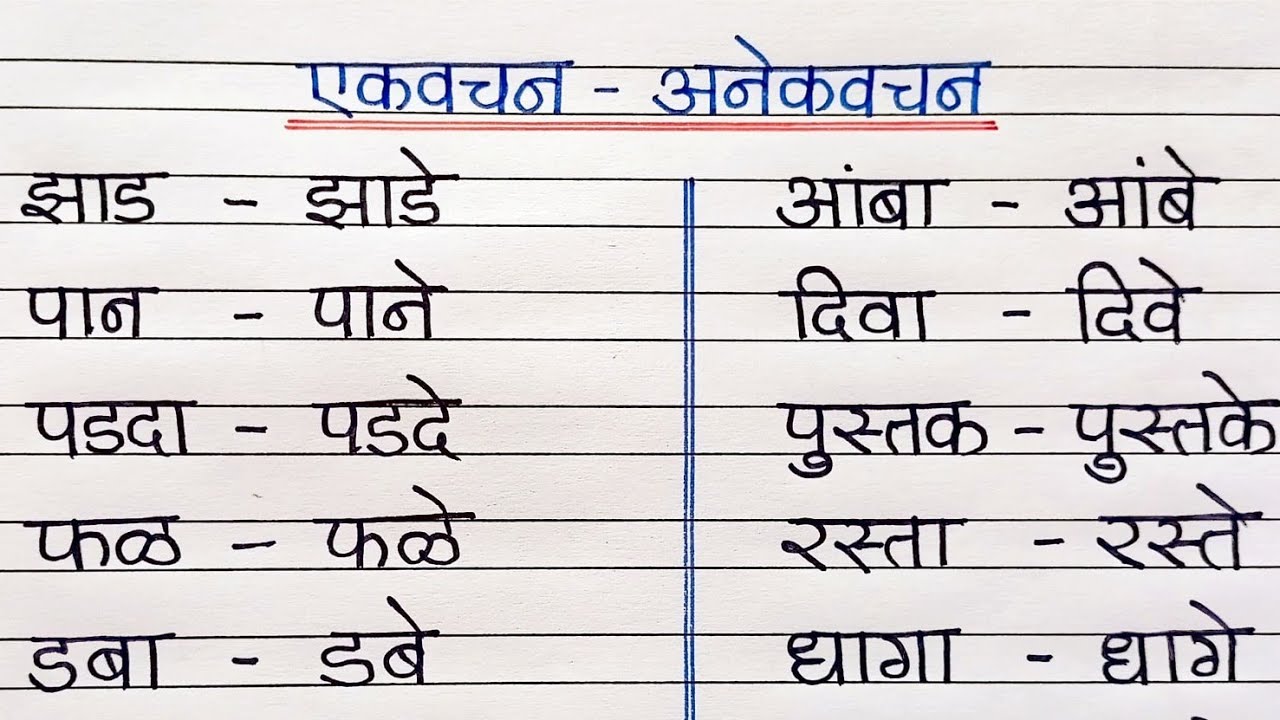 एकवचन - अनेकवचन
झाड - झाडे
पान - पाने
पडदा - पडदे
फळ - फळे
डबा - डबे
आंबा - आंबे
दिवा - दिवे
पुस्तक - पुस्तके
रस्ता - रस्ते
धागा - धागे